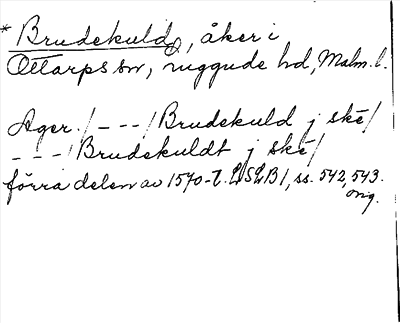 * Brudekuld, åker i
Ottarps sn, ruggude hd, Malm. l.
Ager. / - - - / Brudekuld j skē /
- - - / Brudekuldt j skē /
förra delen av 1570-t. LSLB1, ss. 542, 543.
orig.